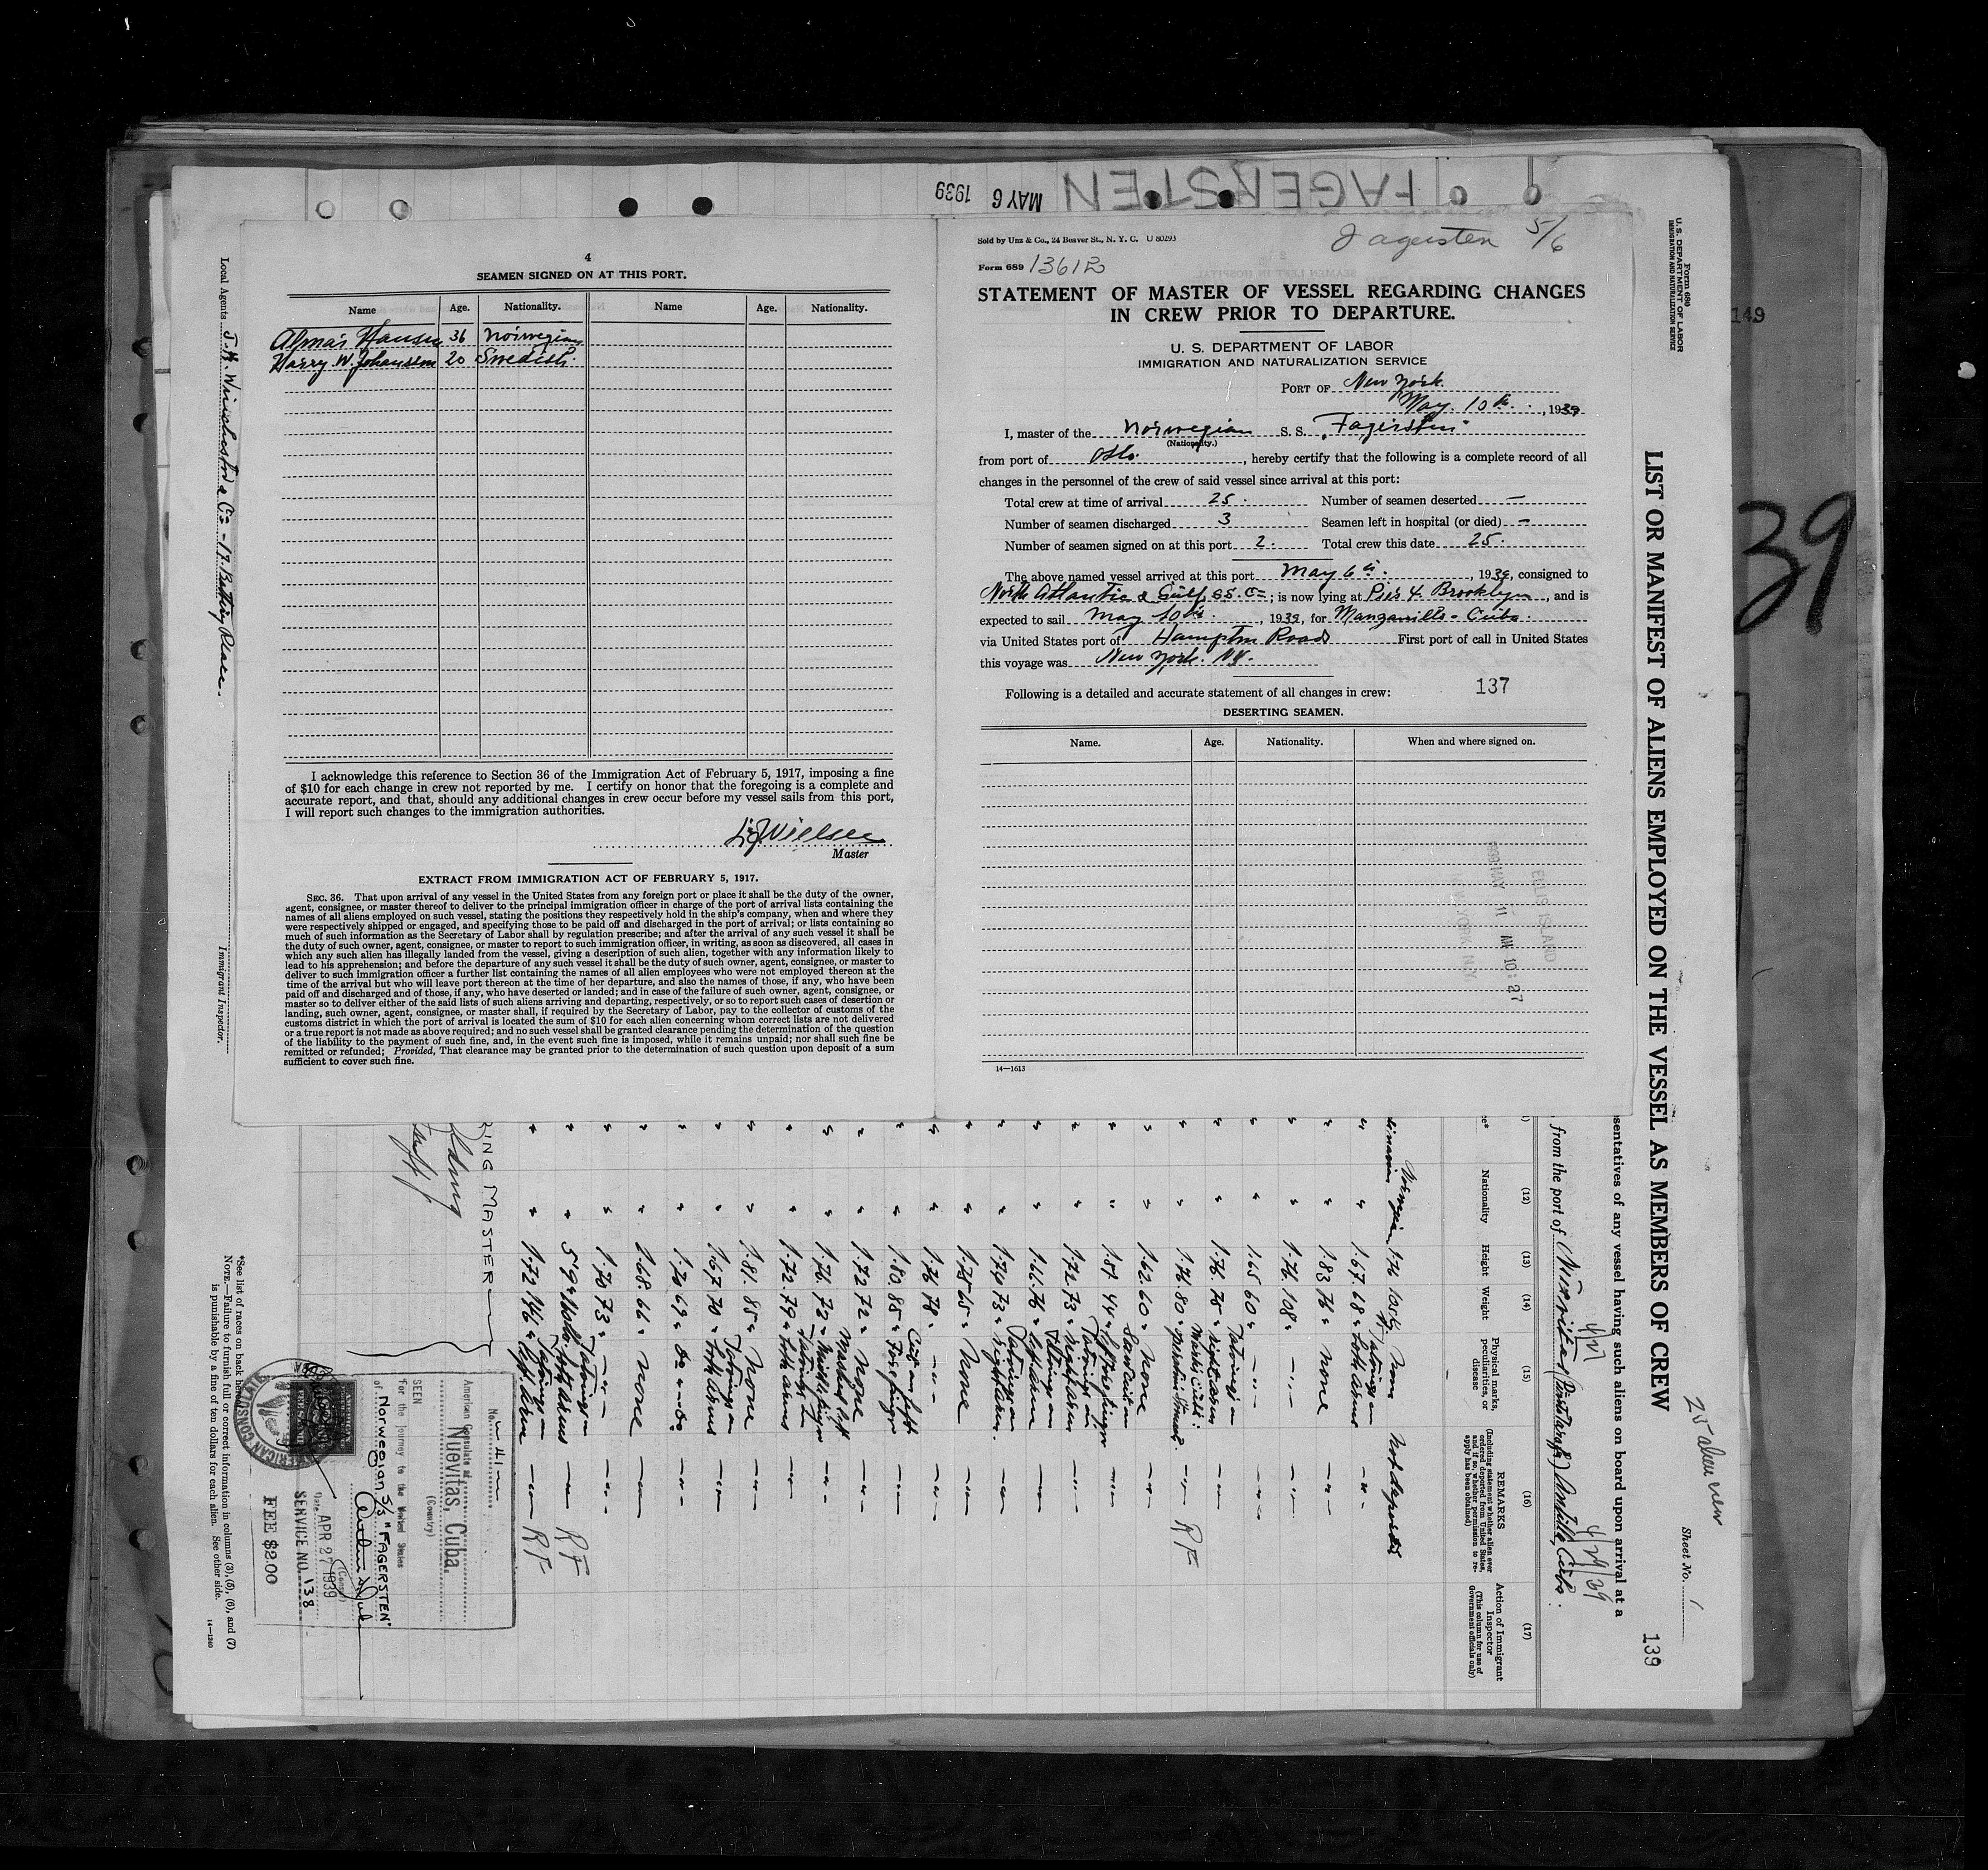 FAGERSTEN
MAY 6 1939
4
SEAMEN SIGNED ON AT THIS PORT.
Name Age. Nationality. Name Age. Nationality.
Almar Hansen 36 Norwegian
Harry W. Johansson 20 Swedish.
I acknowledge this reference to Section 36 of the Immigration Act of February 5, 1917, imposing a fine
of $10 for each change in crew not reported by me. I certify on honor that the foregoing is a complete and
accurate report, and that, should any additional changes in crew occur before my vessel sails from this port,
I will report such changes to the immigration authorities.
Master
EXTRACT FROM IMMIGRATION ACT OF FEBRUARY 5, 1917.
SEC. 36. That upon arrival of any vessel in the United States from any foreign port or place it shall be the duty of the owner,
agent, consignee, or master thereof to deliver to the principal immigration officer in charge of the port of arrival lists containing the
names of all aliens employed on such vessel, stating the positions they respectively hold in the ship's company, when and where they
were respectively shipped or engaged, and specifying those to be paid off and discharged in the port of arrival; or lists containing so
much of such information as the Secretary of Labor shall by regulation prescribe; and after the arrival of any such vessel it shall be
the duty of such owner, agent, consignee, or master to report to such immigration officer, in writing, as soon as discovered, all cases in
which any such alien has illegally landed from the vessel, giving a description of such alien, together with any information likely to
lead to his apprehension; and before the departure of any such vessel it shall be the duty of such owner, agent, consignee, or master to
deliver to such immigration officer a further list containing the names of all alien employees who were not employed thereon at the
time of the arrival but who will leave port thereon at the time of her departure, and also the names of those, if any, who have been
paid off and discharged and of those, if any, who have deserted or landed; and in case of the failure of such owner, agent, consignee, or
master so to deliver either of the said lists of such aliens arriving and departing, respectively, or so to report such cases of desertion or
landing, such owner, agent, consignee, or master shall, if required by the Secretary of Labor, pay to the collector of customs of the
customs district in which the port of arrival is located the sum of $10 for each alien concerning whom correct lists are not delivered
or a true report is not made as above required; and no such vessel shall be granted clearance pending the determination of the question
of the liability to the payment of such fine, and, in the event such fine is imposed, while it remains unpaid; nor shall such fine be
remitted or refunded; Provided, That clearance may be granted prior to the determination of such question upon deposit of a sum
sufficient to cover such fine.
Sold by Unz & Co., 24 Beaver St., N. Y. C. U 80293
Fagersten 5/6
Form 689
STATEMENT OF MASTER OF VESSEL REGARDING CHANGES
IN CREW PRIOR TO DEPARTURE.
U. S. DEPARTMENT OF LABOR
IMMIGRATION AND NATURALIZATION SERVICE
PORT OF New York
May 10th, 1939
I, master of the Norwegian S. S. "Fagersten"
(Nationality.)
from port of Oslo, hereby certify that the following is a complete record of all
changes in the personnel of the crew of said vessel since arrival at this port:
Total crew at time of arrival 25. Number of seamen deserted —
Number of seamen discharged 3 Seamen left in hospital (or died) —
Number of seamen signed on at this port 2. Total crew this date 25.
The above named vessel arrived at this port May 6th, 1939, consigned to
North Atlantic & Gulf SS. Co; is now lying at Pier 4 Brooklyn, and is
expected to sail May 10th, 1939, for Manzanillo - Cuba.
via United States port of Hampton Roads First port of call in United States
this voyage was New York. N.Y.
Following is a detailed and accurate statement of all changes in crew: 137
DESERTING SEAMEN.
Name. Age. Nationality. When and where signed on.
ELLIS ISLAND
1939 MAY 11 AM 10:27
NEW YORK N.Y.
14—1613
Form 680
U. S. DEPARTMENT OF LABOR
IMMIGRATION AND NATURALIZATION SERVICE
LIST OR MANIFEST OF ALIENS EMPLOYED ON THE VESSEL AS MEMBERS OF CREW
Sheet No. 1
139
25 alien crew
sentatives of any vessel having such aliens on board upon arrival at a
from the port of Nuevitas (Punta Tarafa) Antilla, Cuba.
4/27 4/29/39
(12) Nationality
(13) Height
(14) Weight
(15) Physical marks, peculiarities, or disease
(16) REMARKS
(Including statement whether alien ever ordered deported from United States, and if so, whether permission to reapply has been obtained)
(17) Action of Immigrant Inspector
(This column for use of Government officials only)
Norwegian 1.76 None Not deported
1.67 68 Tatooings on both arms
1.83 76 None
1.76 108
1.65 60
1.76 75 Tatooings on right arm
1.76 80 RF
1.62 60 None
1.72 73 right arm
1.66 76 left arm
1.74 73 right arm
1.75 65 None
1.76 78
1.80 85 Cut on left fore finger
1.72 72 None
1.76 73
1.72 79 both arms
1.81 85 None
1.67 70 Tatooings on both arms
1.76 69
1.68 66 None
1.70 73
RF
1.72 left arm RF
RING MASTER
No. 41
American Consulate at
Nuevitas, Cuba.
(Country)
SEEN
For the journey to the United States
of Norwegian S/S "FAGERSTEN"
Date APR 27 1939
SERVICE NO. 138
FEE $2.00
AMERICAN CONSULATE
*See list of races on back hereof.
NOTE.—Failure to furnish full or correct information in columns (3), (5), (6), and (7)
is punishable by a fine of ten dollars for each alien. See other side.
14—1240
Local Agents J. H. Winchester & Co - 17. Battery Place.
Immigrant Inspector.
149
39